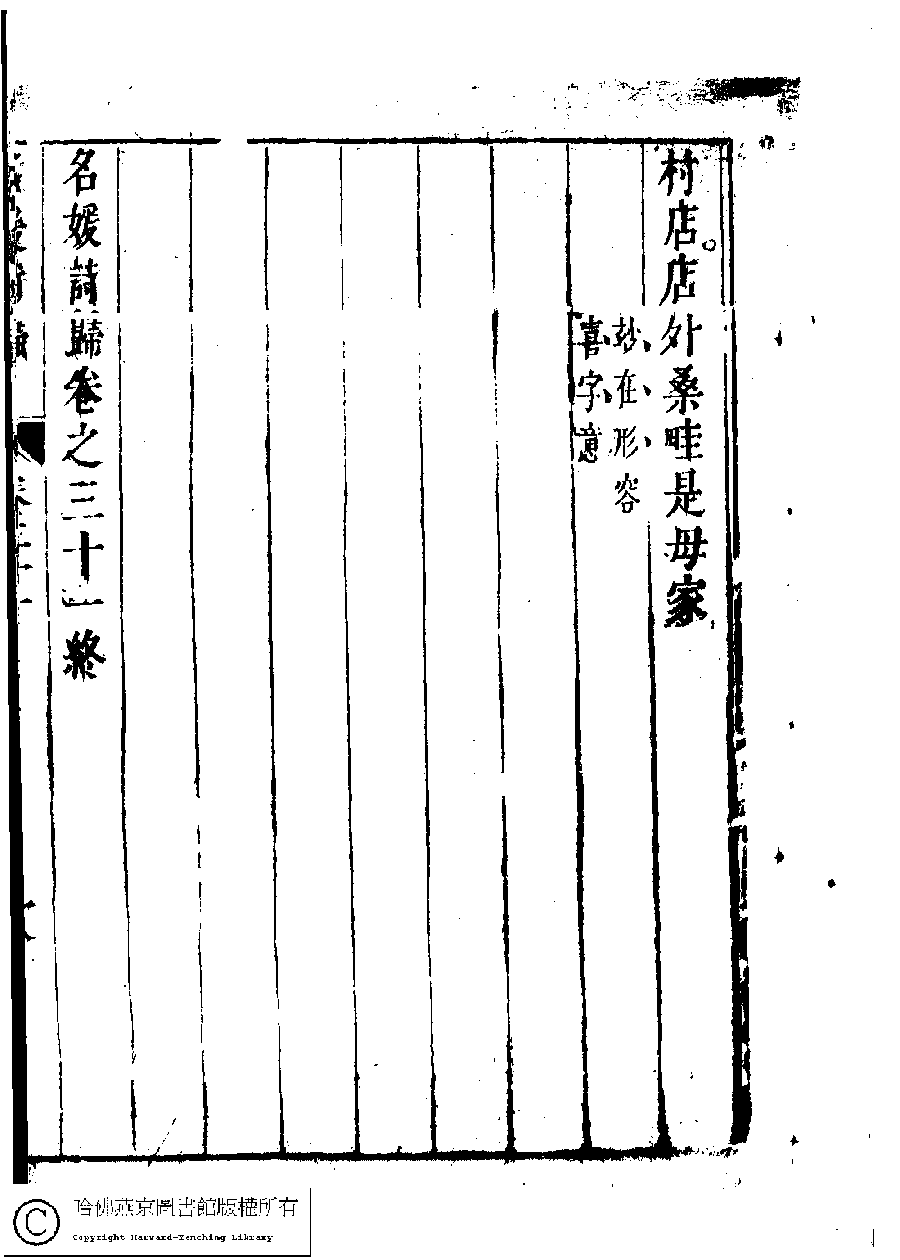 村店。店外桑畦是毋家
妙在形容
喜字意
名媛詩歸卷之三十一終
哈佛燕京圖書館版權所有
Copyright Harvard-Yenching Library